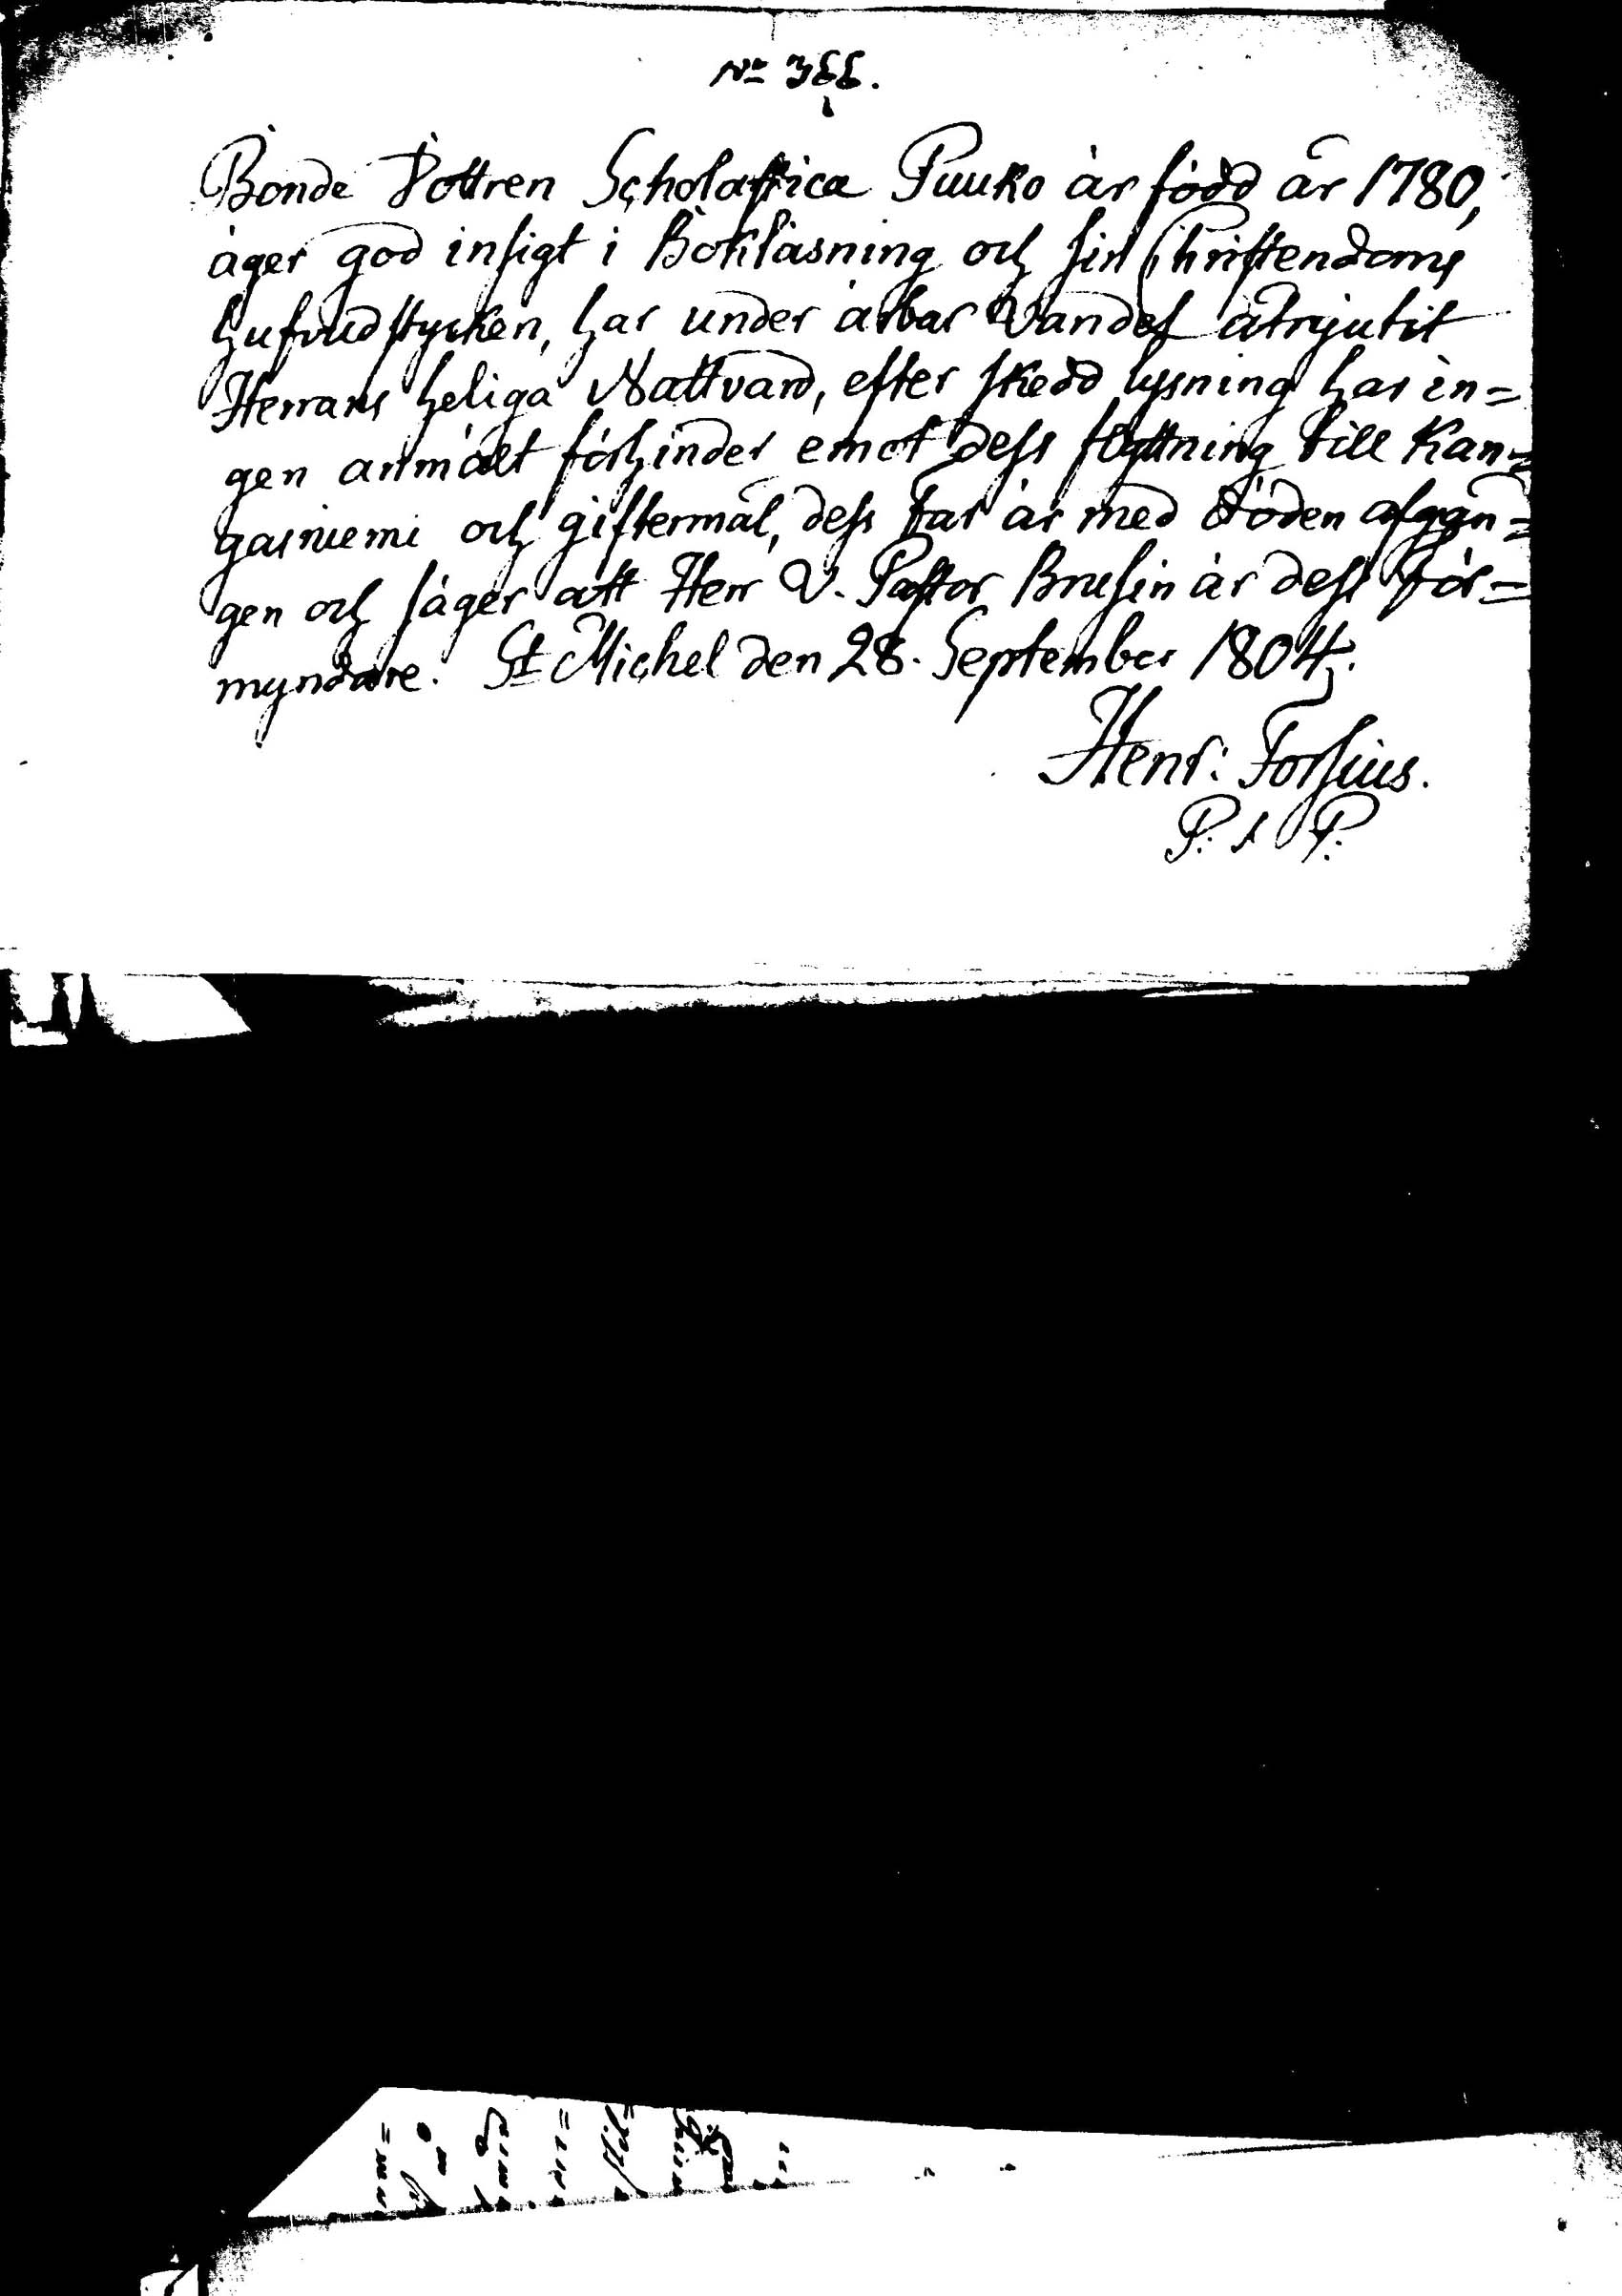 No 366.
Bonde Dottren Scholastica Puuko är född år 1780,
äger god insigt i Bokläsning och sin Christendoms
hufvudstycken, har under ärbar Vandel åtnjutit
Herrans heliga Nattvard, efter skedd lysning har in=
gen anmält förhinder emot dess flyttning till Kan=
gasniemi och giftermål, dess Far är med döden afgån=
gen och säger att Herr V. Pastor Brusin är dess För=
myndare. St Michel den 28. September 1804.
Henr: Forsius.